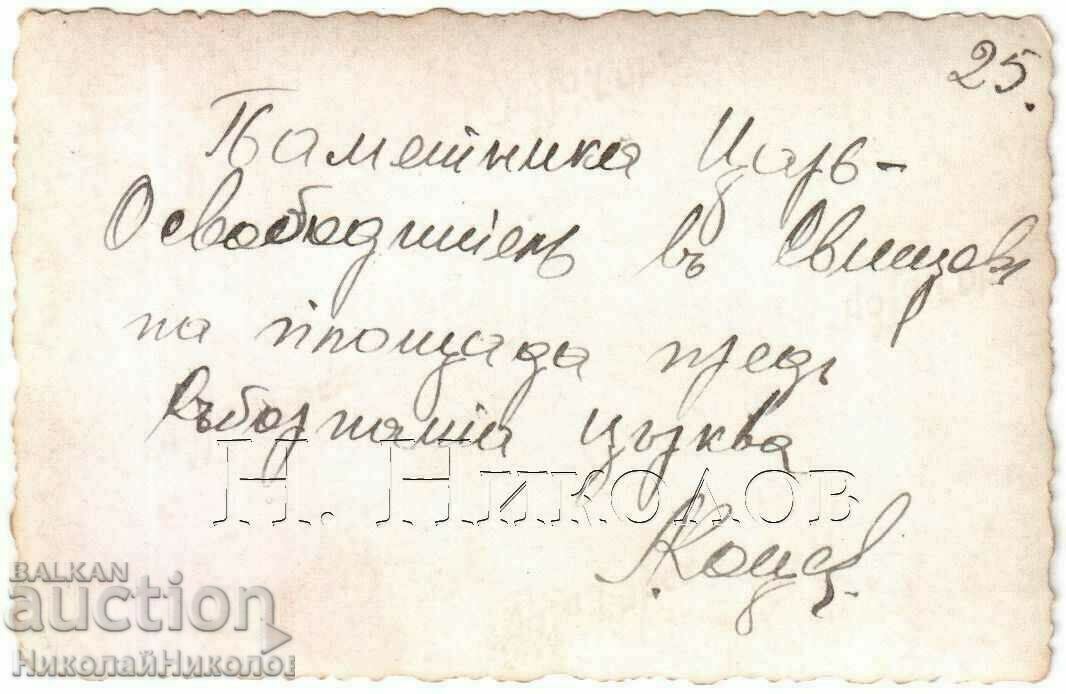 25.
Паметника Царь-
Освободитель въ Свищовъ
на площада предъ
съборната църква
Н. Николов
BALKAN
auction
НиколайНиколов